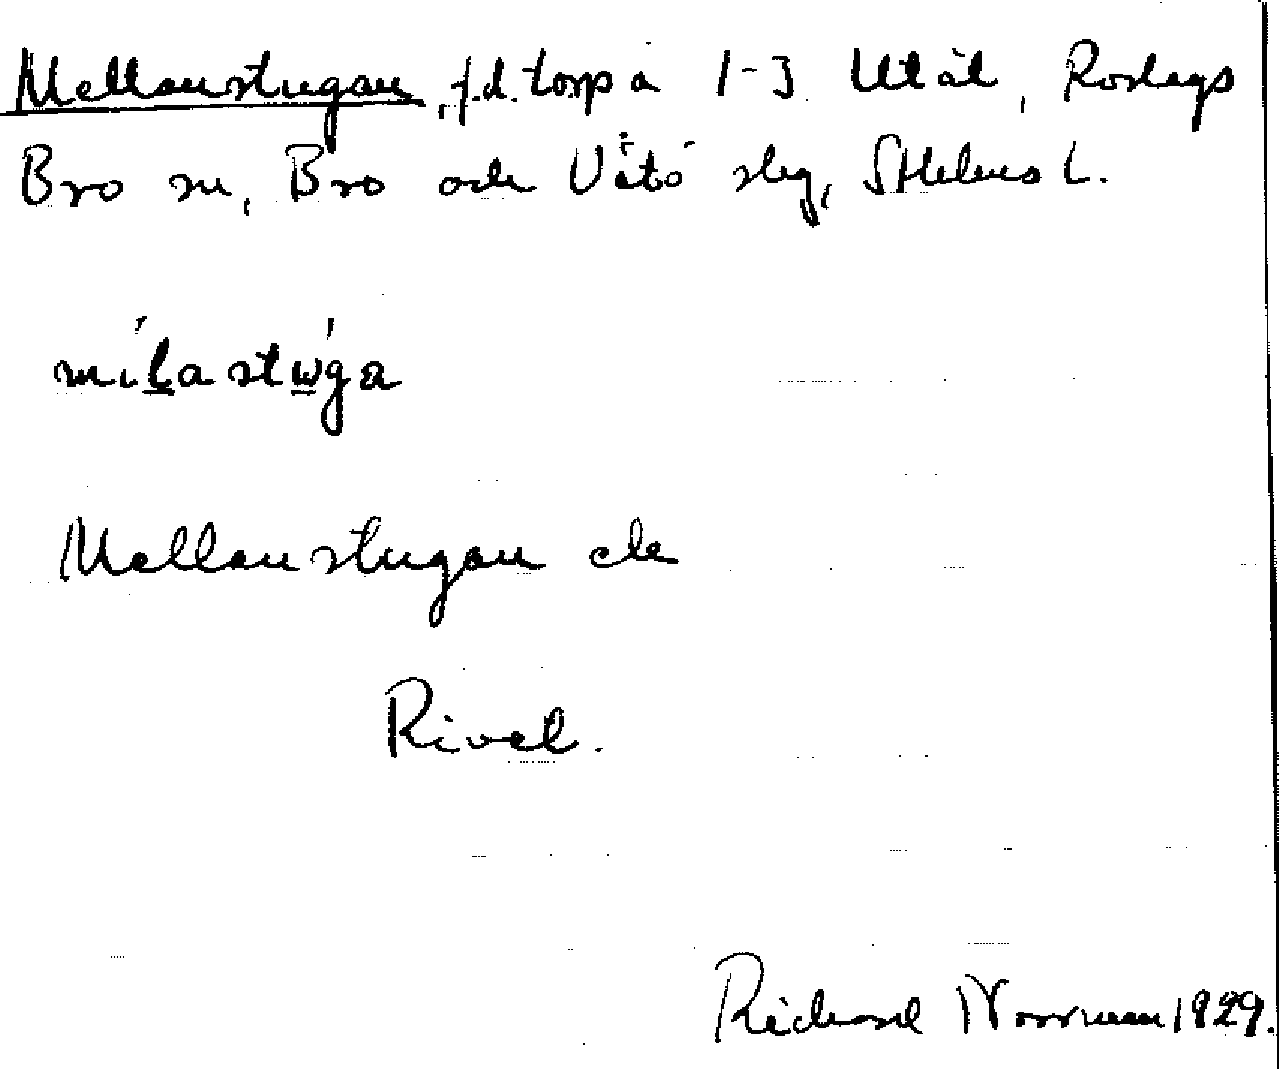 Mellanstugan, f.d. torp å 1-3 Utäl, Roslags
Bro sn, Bro och Vätö slg, Sthlms L.
milastuga
Mellanstugan el
Rivet.
Richard Norrman 1929.